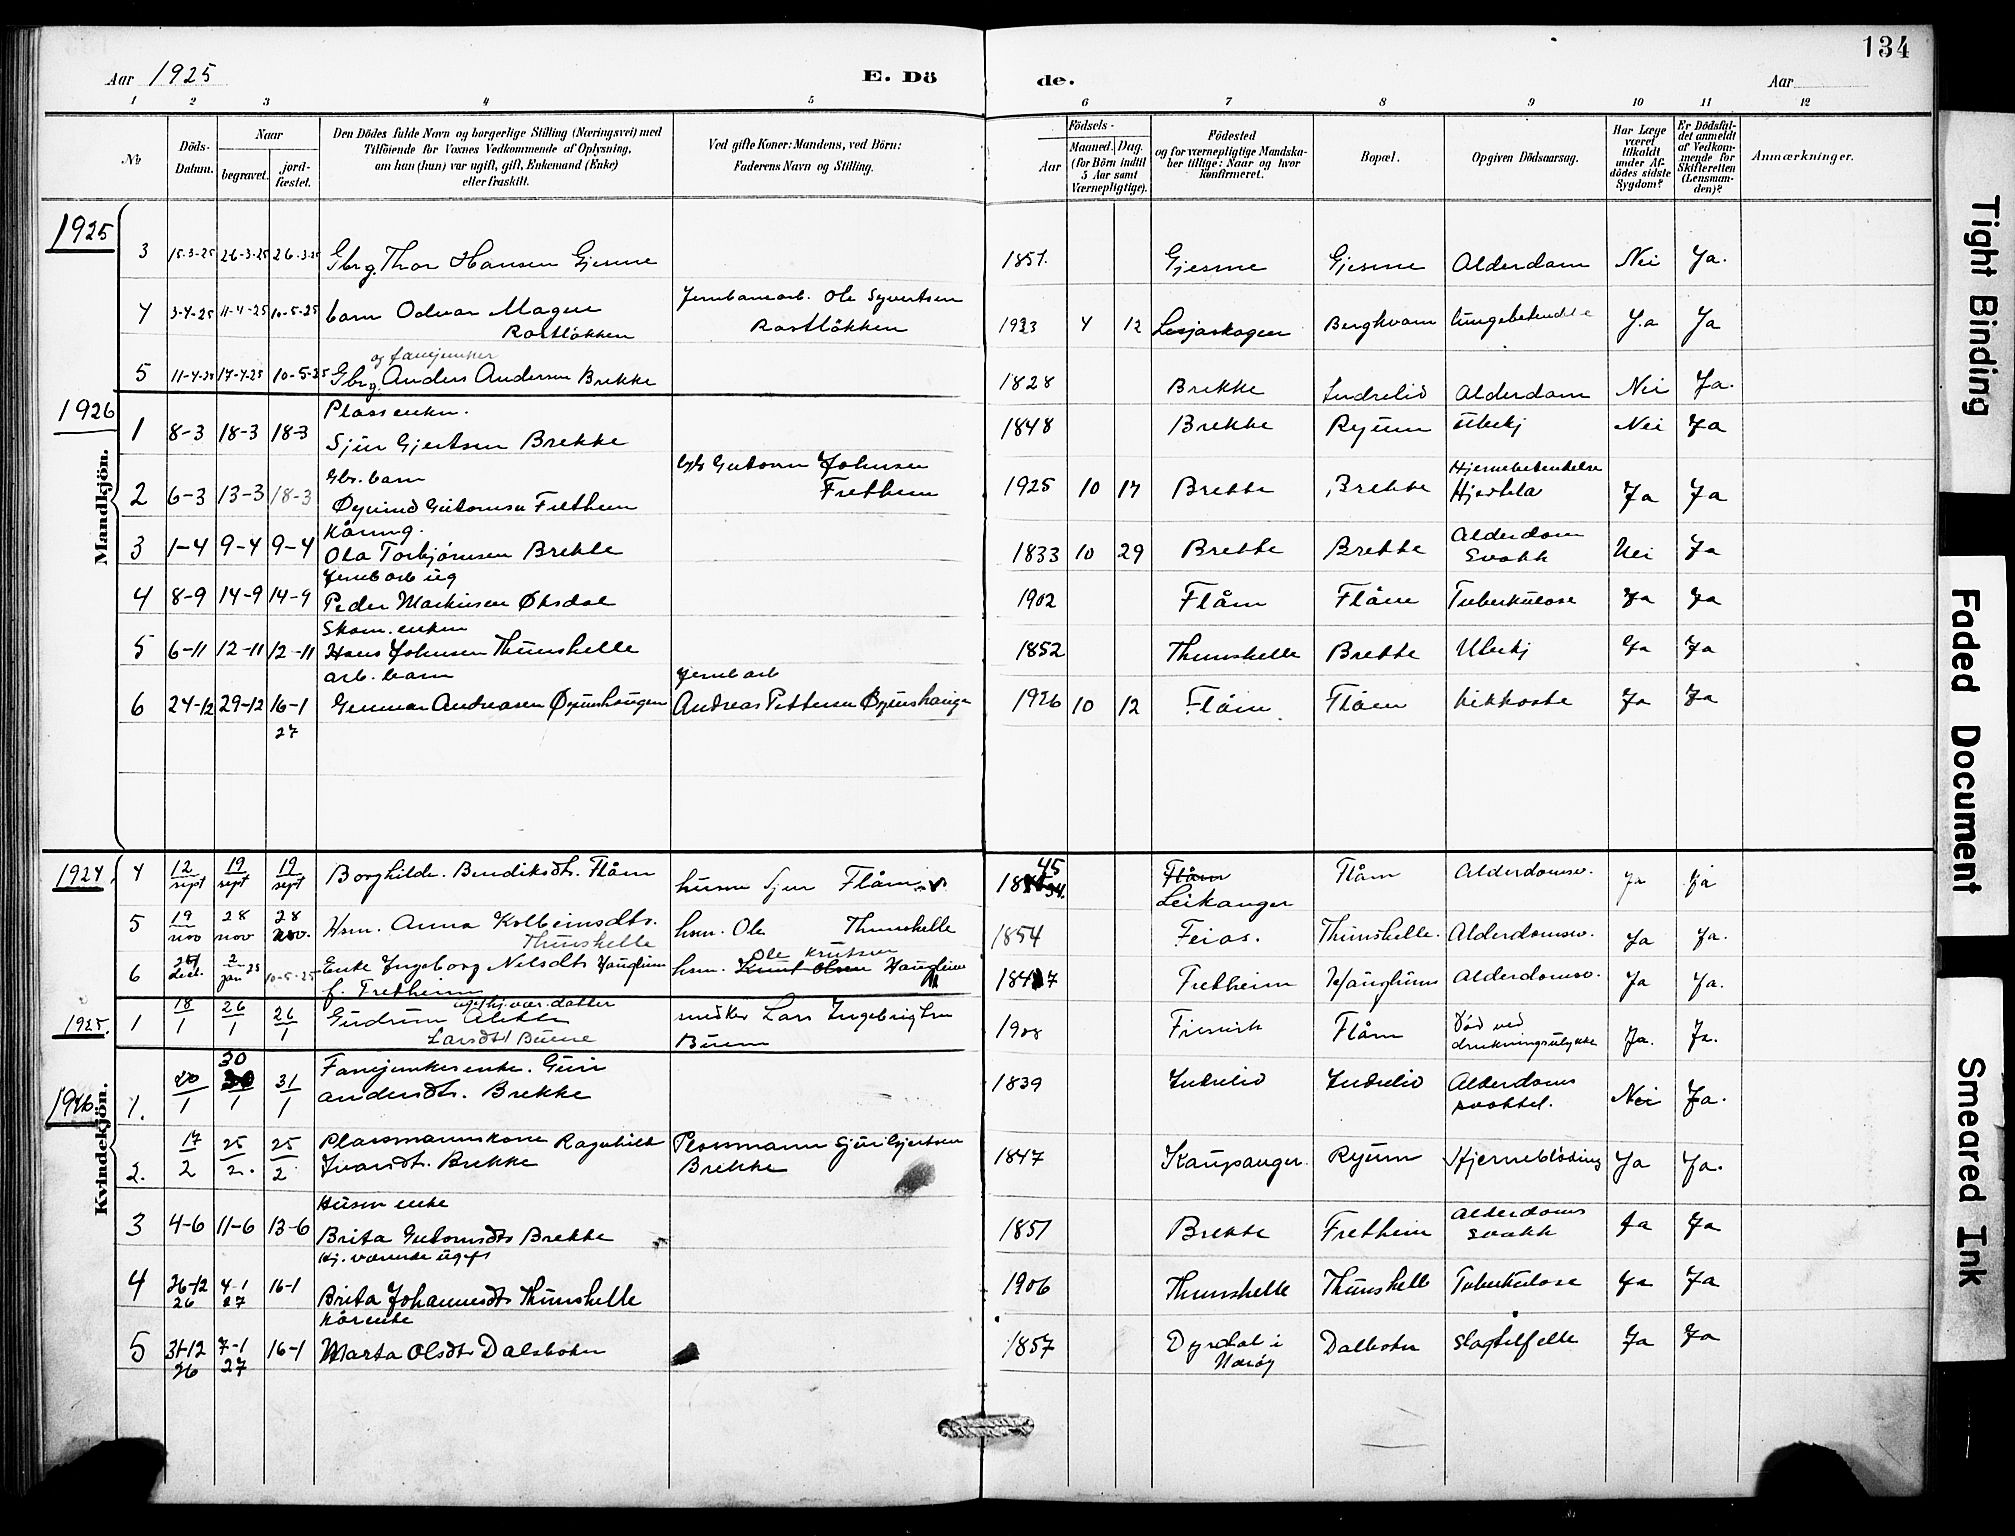 134
Aar 1925
E. Dö
de.
Aar
1 2 3 4 5 6 7 8 9 10 11 12
No
Döds-Datum.
Naar
begravet.
jord-fæstet.
Den Dödes fulde Navn og borgerlige Stilling (Næringsvei) med
Tilföiende for Voxnes Vedkommende af Oplysning,
om han (hun) var ugift, gift, Enkemand (Enke)
eller fraskilt.
Ved gifte Koner: Mandens, ved Börn:
Faderens Navn og Stilling.
Födsels-
Aar
Maaned. Dag.
(for Börn indtil
5 Aar samt
Værnepligtige).
Födested
og for værnepligtige Mandska-
ber tillige: Naar og hvor
konfirmeret.
Bopæl.
Opgiven Dödsaarsag.
Har Læge
været
tilkaldt
under Af-
dödes sidste
Sygdom?
Er Dödsfal-
det anmeldt
af Vedkom-
mende for
Skifteretten
(Lensman-
den)?
Anmærkninger.
Mandkjön.
1925
3 15-3-25 26-3-25 26-3-25 Gbrg. Thor Hansen Gjesme 1851. Gjesme Gjesme Alderdom Nei Ja.
4 3-4-25 11-4-25 10-5-25 barn Odvar Magne Jernbanearb. Ole Syvertsen
Rostlökken Rostlökken 1923 4 12 Lesjaskogen Berghvam Ja Ja
og fanejunker
5 11-4-25 17-4-25 10-5-25 Gbrg. Anders Andersen Brekke 1828 Brekke Indrelid Alderdom Nei Ja.
1926
Plassenkm.
1 8-3 18-3 18-3 Sjur Gjertsen Brekke 1848 Brekke Ryum Ubekj Nei Ja
Gbr. barn Johnsen
2 6-3 13-3 18-3 Øyvind Guttormsen Fretheim Fretheim 1925 10 17 Brekke Brekke Hjernebetendelse
Ja Ja
Kårmg.
3 1-4 9-4 9-4 Ola Torbjørnsen Brekke 1833 10 29 Brekke Brekke Alderdom
Svakh Nei Ja
Jernb arb ug
4 8-9 14-9 14-9 Peder Markusen 1902 Flåm Flåm Tuberkulose Ja Ja
Skom. enkm
5 6-11 12-11 12-11 Hans Johnsen Thunshelle 1852 Thunshelle Brekke Ubekj Ja Ja
arb. barn Jernb arb
6 24-12 29-12 16-1 Gunnar Andreasen Øyumshaugen Andreas Pettersen Øyumshaugen 1926 10 12 Flåm Flåm Kikhoste Ja Ja
27
Kvindekjön.
1924.
4 12/sept 19/sept 19/sept Borghilde. Bendiksdtr. Flåm husm Sjur Flåm 45 Flåm
Leikanger Flåm Alderdomsv. Ja Ja
5 19/nov 28 nov 28 nov. Hsm. Anna Kolbeinsdtr.
Thunshelle hsm. Ole Thunshelle 1854 Feios. Thunshelle. Alderdomsv. Ja Ja.
6 2/jan 25 10-5-25 Enke Ingeborg Nilsdtr Haugheim
f. Fretheim hsm. Ole Knutsen Knut Olsen Haugheim 1847 Fretheim Haugheim Alderdomsv. Ja Ja.
1925.
ugift hj. vær. datter
1 18/1 26/1 26/1 Gudrun
Larsdtr Buene Lars Ingebrigtsen
Buene Flåm Död ved
drukningsulykke Ja. Ja.
1926.
1. 20/1 30/1 31/1 Fanejunkerenke. Guri
Andersdtr. Brekke 1839 Indrelid Indrelid Alderdoms
svakhet. Nei Ja.
2. 17/2 25/2. 25/2 Plassmannskone Ragnhild
Ivarsdtr. Brekke Plassmann Sjur Gjertsen
Brekke 1847 Kaupanger. Ryum Hjerneblödning Ja Ja.
Husm enke
3 4-6 11-6 13-6 Brita Guttormsdtr Brekke 1851 Brekke Fretheim Alderdoms
svakh Ja Ja
Hj. værende ugift
4 26-12 26 4-1 27 16-1 Brita Johannesdtr Thunshelle 1906 Thunshelle Thunshell Tuberkulose Ja Ja
Kårenke
5 31-12 26 7-1 27 16-1 Marta Olsdtr Dalsbotn 1857 Dyrdal i
Nærøy Dalbotn Slagtilfelle Ja Ja
Tight Binding
Faded Document
Smeared Ink